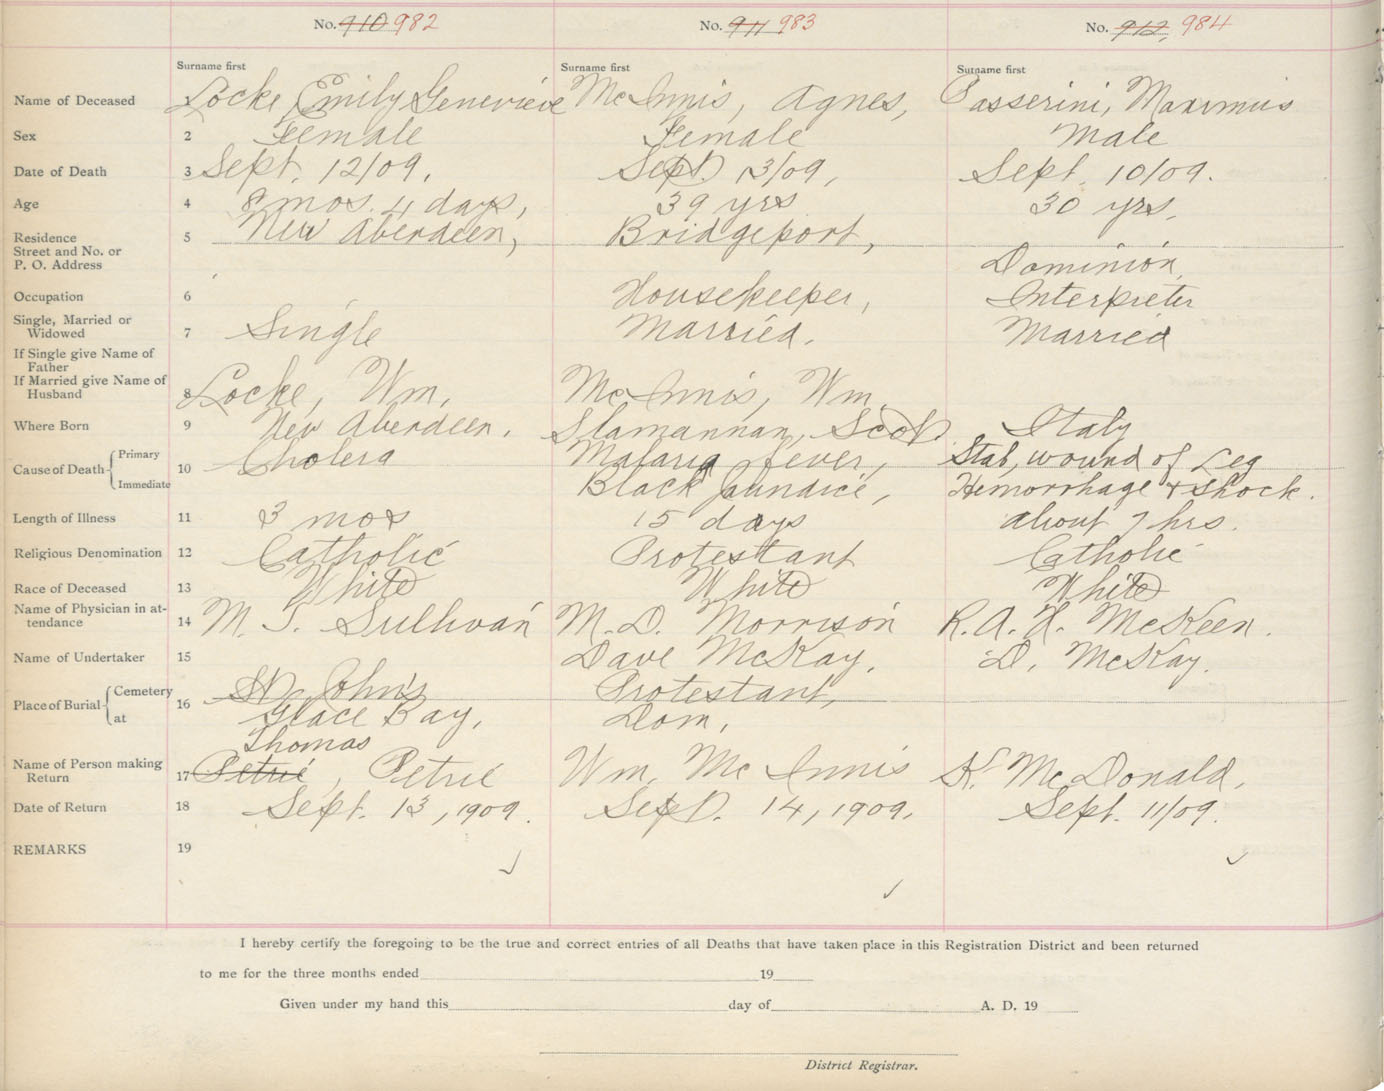 No. 910 982 No. 911 983 No. 912, 984
Surname first Surname first Surname first
Name of Deceased 1 Locke, Emily Genevieve McInnis, Agnes, Passerini, Maximus
Sex 2 Female Female Male
Date of Death 3 Sept. 12/09. Sept. 13/09, Sept. 10/09.
Age 4 8 mos. 4 days, 39 yrs 30 yrs.
Residence 5 New Aberdeen, Bridgeport,
Street and No. or
P. O. Address Dominion,
Occupation 6 Housekeeper, Interpreter
Single, Married or
Widowed 7 Single Married. Married
If Single give Name of
Father
If Married give Name of
Husband 8 Locke, Wm, McInnis, Wm.
Where Born 9 New Aberdeen. Slamannan, Scot. Italy
Cause of Death Primary 10 Cholera Malaria fever, Stab, wound of Leg
Immediate Black Jaundice, Hemorrhage & Shock.
Length of Illness 11 3 mos 15 days about 7 hrs.
Religious Denomination 12 Catholic Protestant Catholic
Race of Deceased 13 White White White
Name of Physician in at-
tendance 14 M. T. Sullivan M. D. Morrison R. A. H. McKeen.
Name of Undertaker 15 Dave McKay, D. McKay.
Place of Burial Cemetery 16 St. John's Protestant,
at Glace Bay, Dom,
Thomas
Name of Person making
Return 17 Petrie, Petrie Wm, McInnis K. McDonald,
Date of Return 18 Sept. 13, 1909. Sept. 14, 1909. Sept. 11/09.
REMARKS 19
I hereby certify the foregoing to be the true and correct entries of all Deaths that have taken place in this Registration District and been returned
to me for the three months ended 19
Given under my hand this day of A. D. 19
District Registrar.